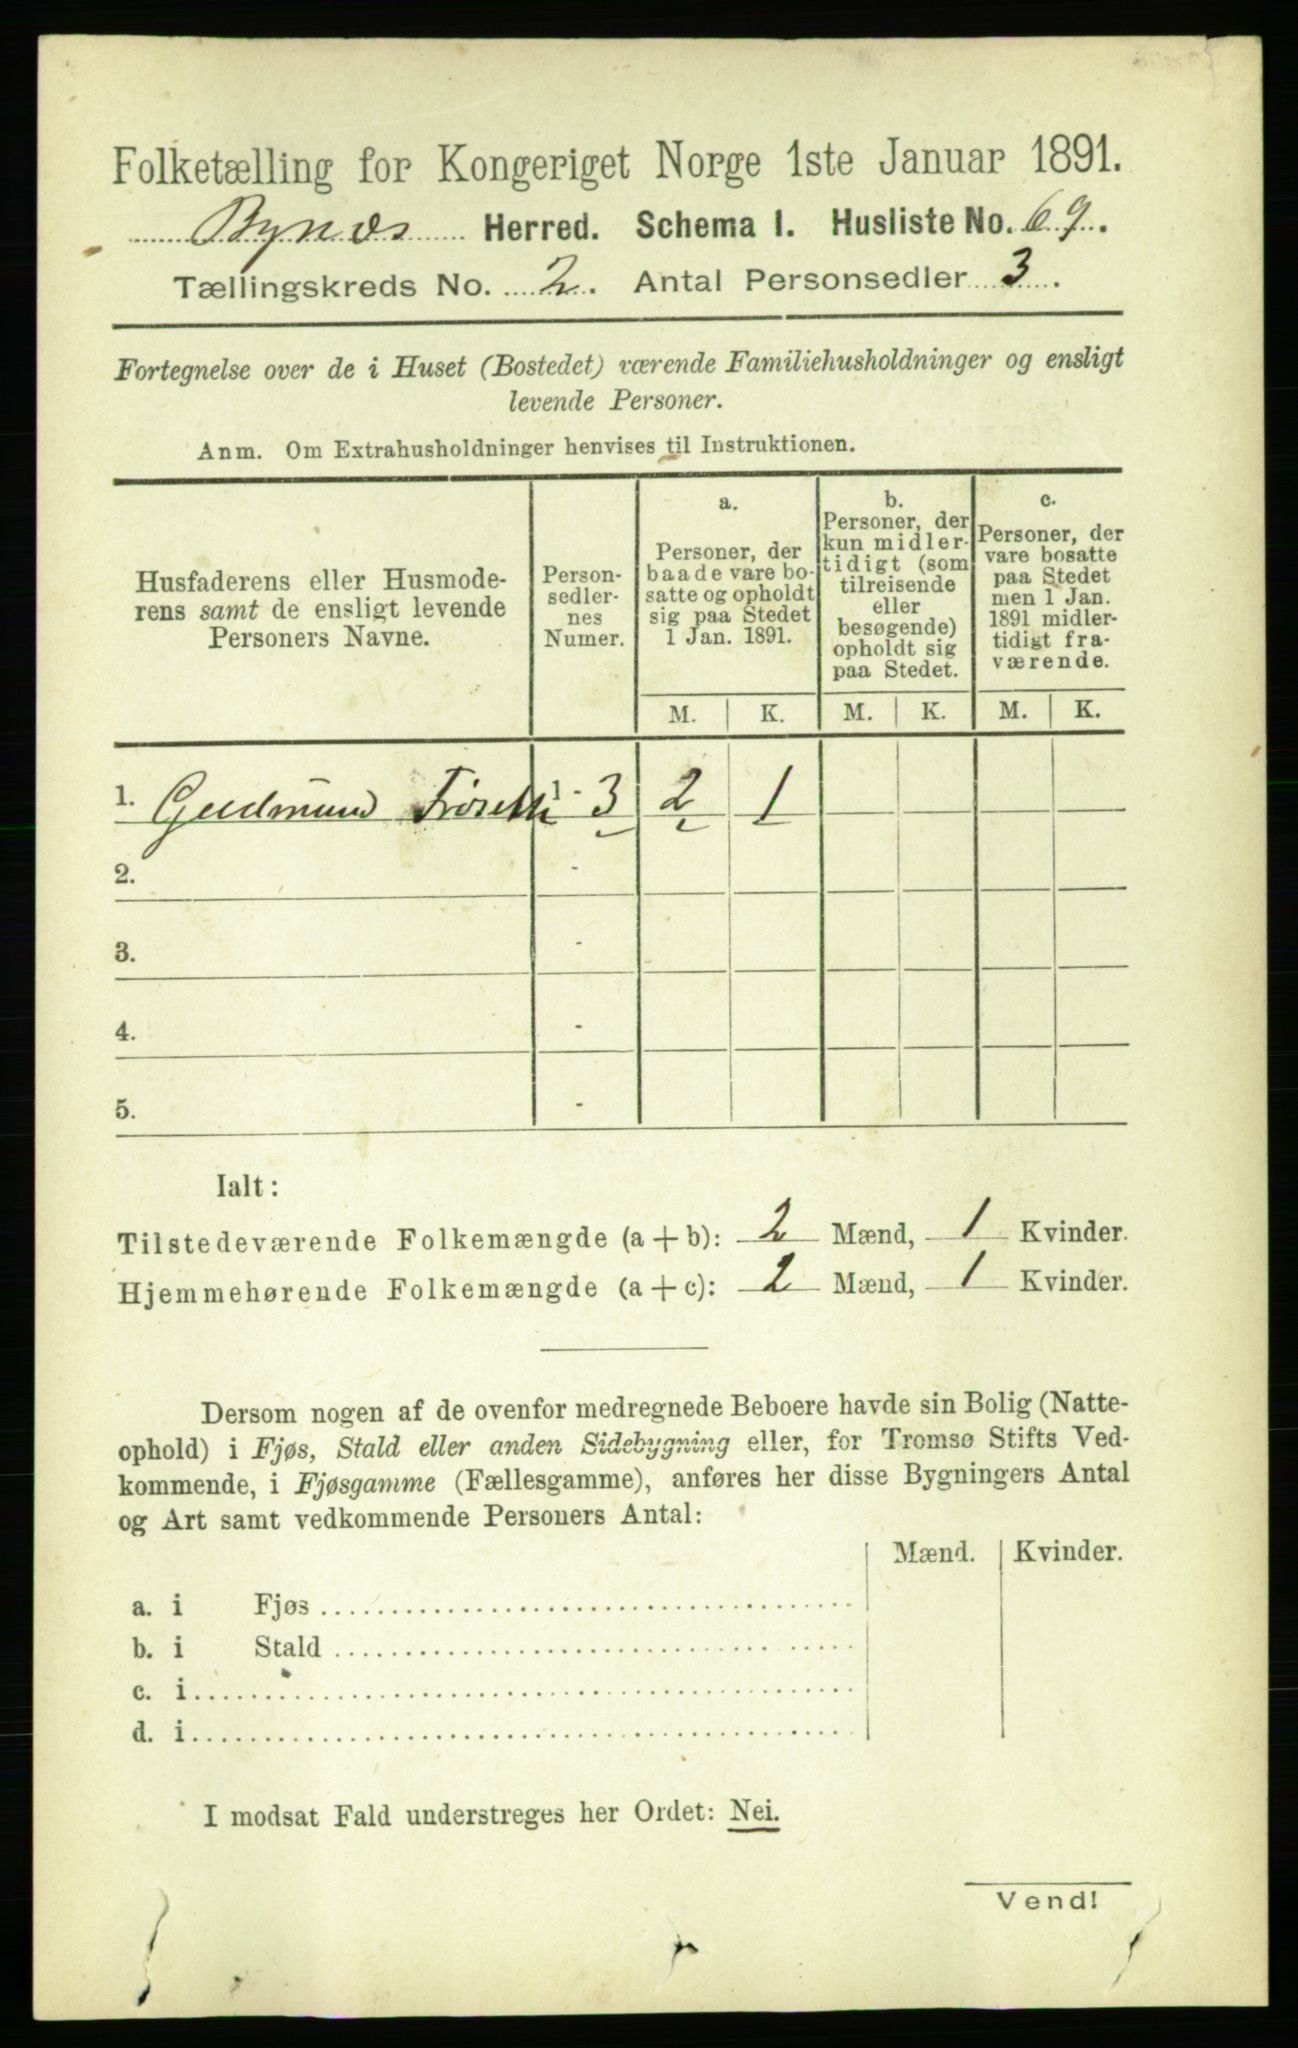 Folketælling for Kongeriget Norge 1ste Januar 1891.
Bynæs Herred. Schema I. Husliste No. 69.
Tællingskreds No. 2. Antal Personsedler 3.
Fortegnelse over de i Huset (Bostedet) værende Familiehusholdninger og ensligt
levende Personer.
Anm. Om Extrahusholdninger henvises til Instruktionen.
Husfaderens eller Husmode-
rens samt de ensligt levende
Personers Navne.
Person-
sedler-
nes
Numer.
a.
Personer, der
baade vare bo-
satte og opholdt
sig paa Stedet
1 Jan. 1891.
b.
Personer, der
kun midler-
tidigt (som
tilreisende
eller
besøgende)
opholdt sig
paa Stedet.
c.
Personer, der
vare bosatte
paa Stedet
men 1 Jan.
1891 midler-
tidigt fra-
værende.
M. K. M. K. M. K.
1. Gudmund 1 - 3 2 1
2. -
3. -
4. -
5. -
Ialt:
Tilstedeværende Folkemængde (a + b): 2 Mænd, 1 Kvinder.
Hjemmehørende Folkemængde (a + c): 2 Mænd, 1 Kvinder.
Dersom nogen af de ovenfor medregnede Beboere havde sin Bolig (Natte-
ophold) i Fjøs, Stald eller anden Sidebygning eller, for Tromsø Stifts Ved-
kommende, i Fjøsgamme (Fællesgamme), anføres her disse Bygningers Antal
og Art samt vedkommende Personers Antal:
Mænd. Kvinder.
a. i Fjøs
b. i Stald
c. i
d. i
I modsat Fald understreges her Ordet: Nei.
Vend!